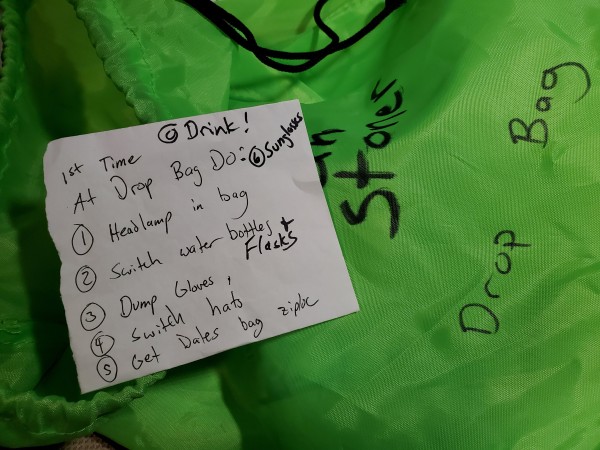 ⓪ Drink!
1st Time
At Drop Bag Do:
⑥ Sunglasses
① Headlamp in bag
② Switch water bottles +
Flasks
③ Dump Gloves,
④ Switch hats
⑤ Get Dates bag ziploc
Stoller
Drop Bag